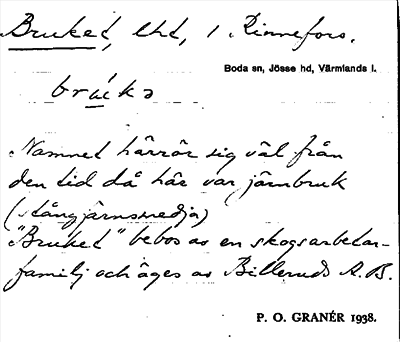 Bruket, lht, 1 Rinnefors.
Boda sn, Jösse hd, Värmlands l.
brúkə
Namnet härrör sig väl från
den tid då här var järnbruk
(stångjärnssmedja)
"Bruket" bebos av en skogsarbetar-
familj och äges av Billeruds A.B.
P. O. GRANÉR 1938.